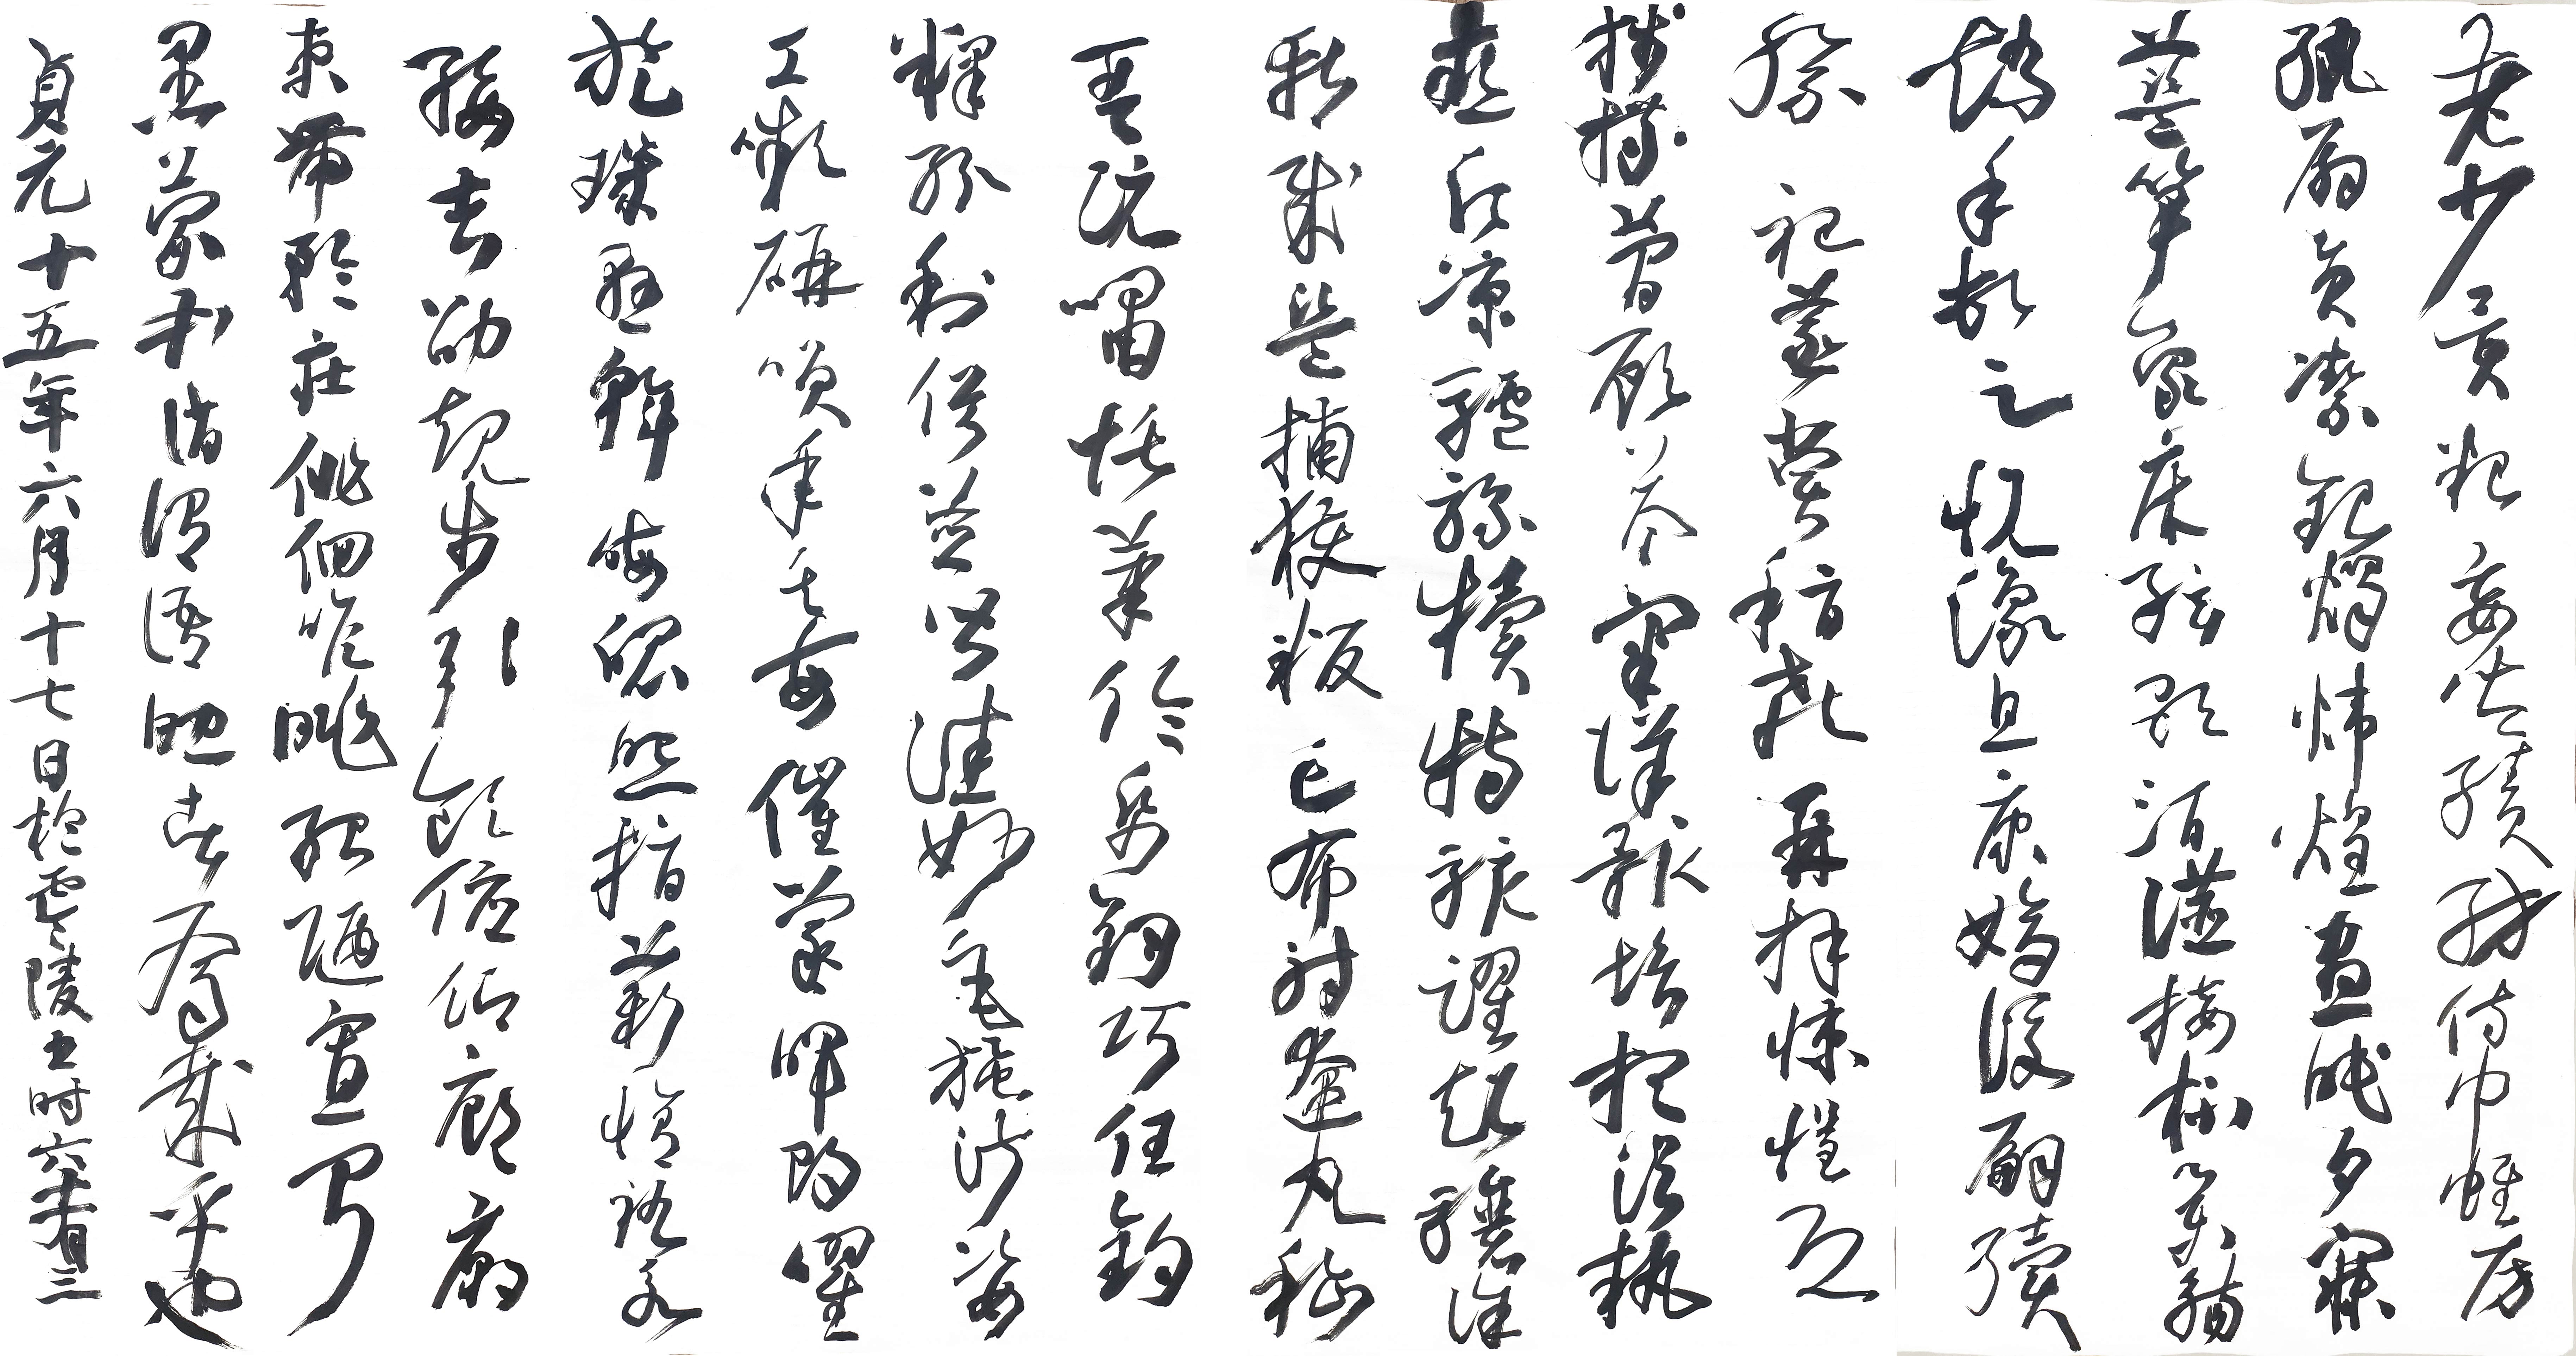 老少異粮妾御績紡侍巾帷房
紈扇員潔銀燭煒煌晝眠夕寐
藍筍象床弦歌酒讌接杯舉觴
矯手頓足悅豫且康嫡後嗣續
祭祀蒸嘗稽顙再拜悚懼恐
牋牒簡顧答審詳骸垢想浴執
熱願凉驢騾犢特駭躍超驤誅
斬賊盜捕獲叛亡布射遼丸嵇
琴阮嘯恬筆倫紙鈞巧任釣
釋紛利俗並皆佳妙毛施淑姿
工顰妍笑年矢每催曦暉朗曜
旋璣懸斡晦魄環照指薪脩祜永
綏吉劭矩步引領俯仰廊廟
束帶矜莊徘徊瞻眺孤陋寡聞
愚蒙等誚謂語助者焉哉乎也
貞元十五年六月十七日於零陵書時六十有三